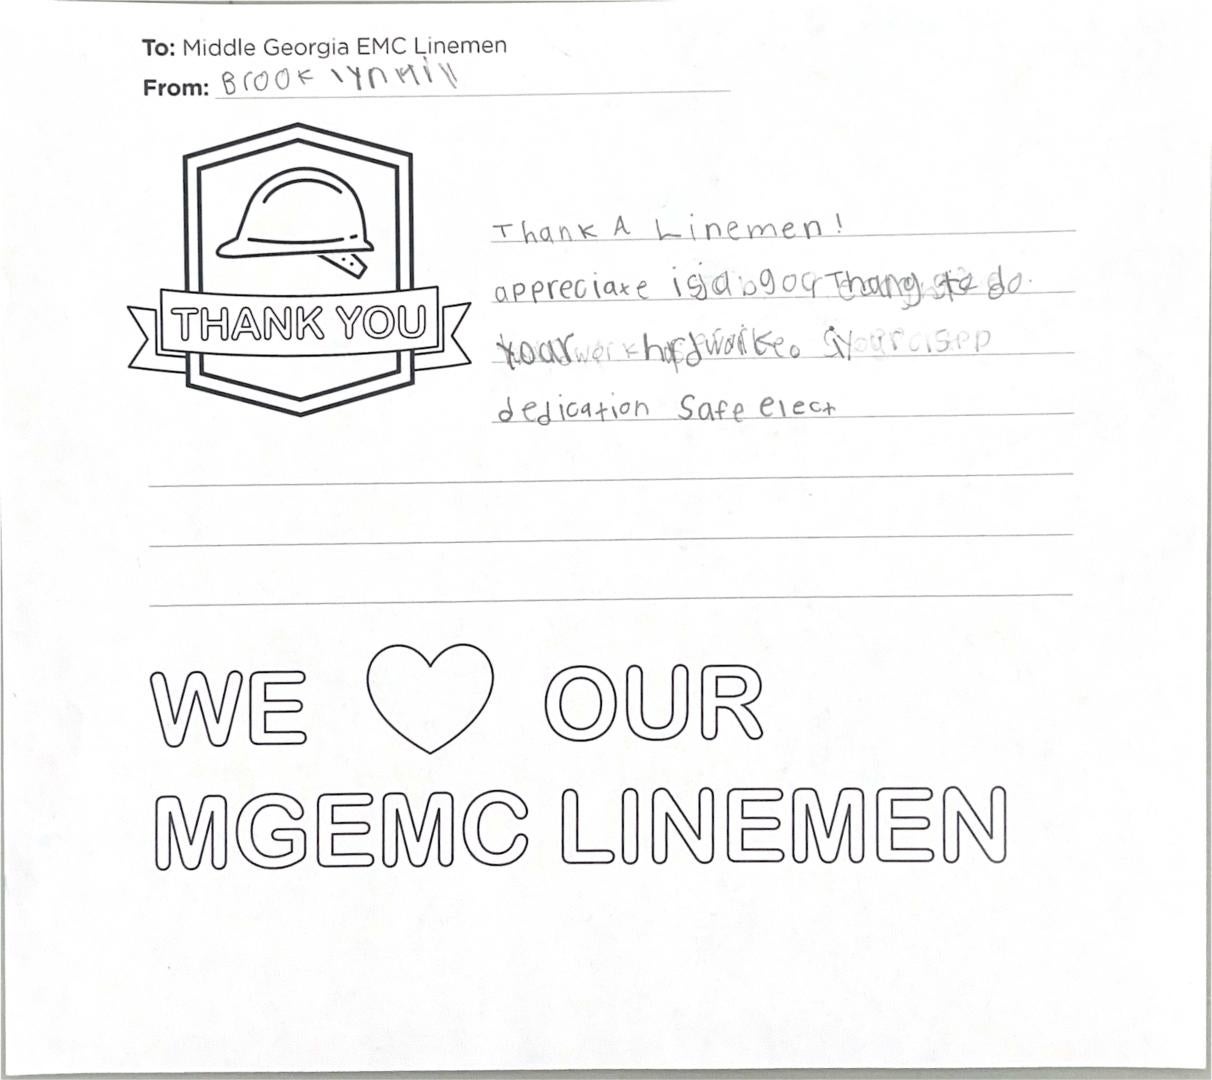 To: Middle Georgia EMC Linemen
From: Brooklyn Hill
THANK YOU
Thank A Linemen!
appreciate is a good Thang to do.
Your hard worke.
dedication Safe elect
WE OUR
MGEMC LINEMEN